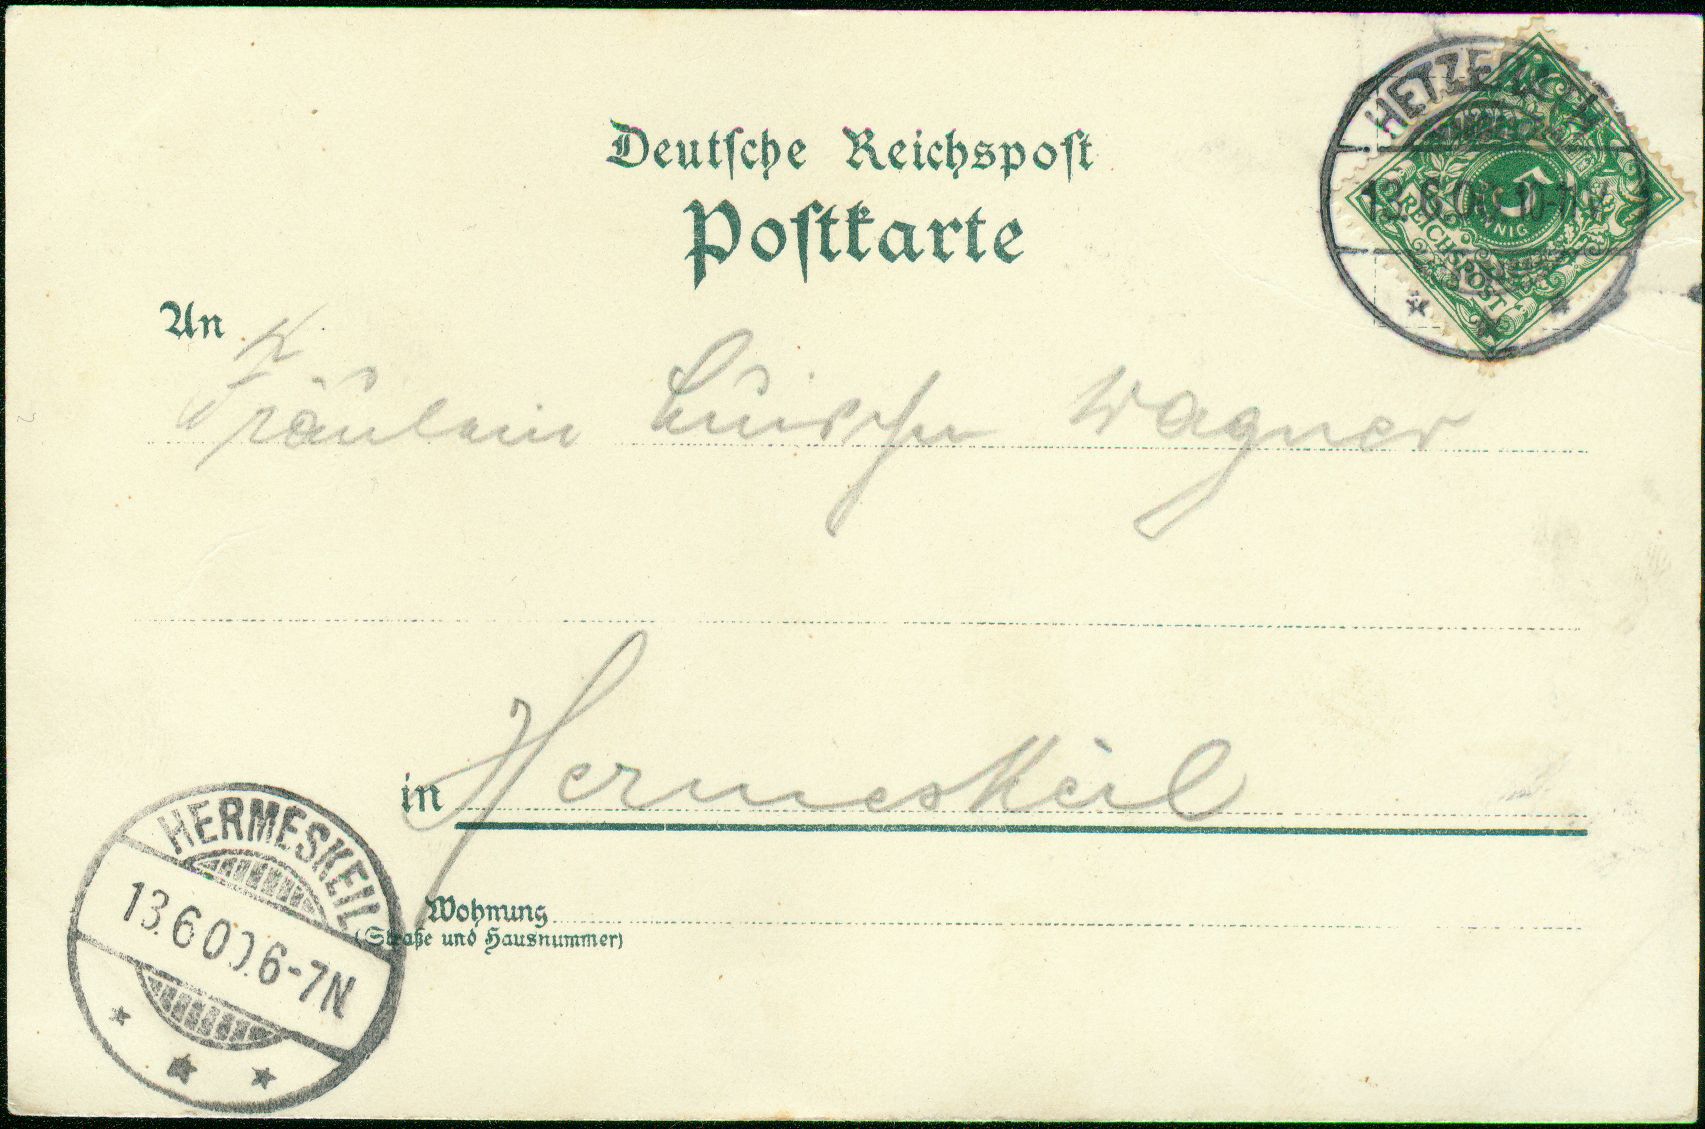 Deutsche Reichspost
Postkarte
HETZERATH
13.6.00. 10-11V
5
PFENNIG
REICHSPOST
An
Fräulein Luischen Wagner
in Hermeskeil
Wohnung
(Straße und Hausnummer)
HERMESKEIL
13.6.00.6-7N